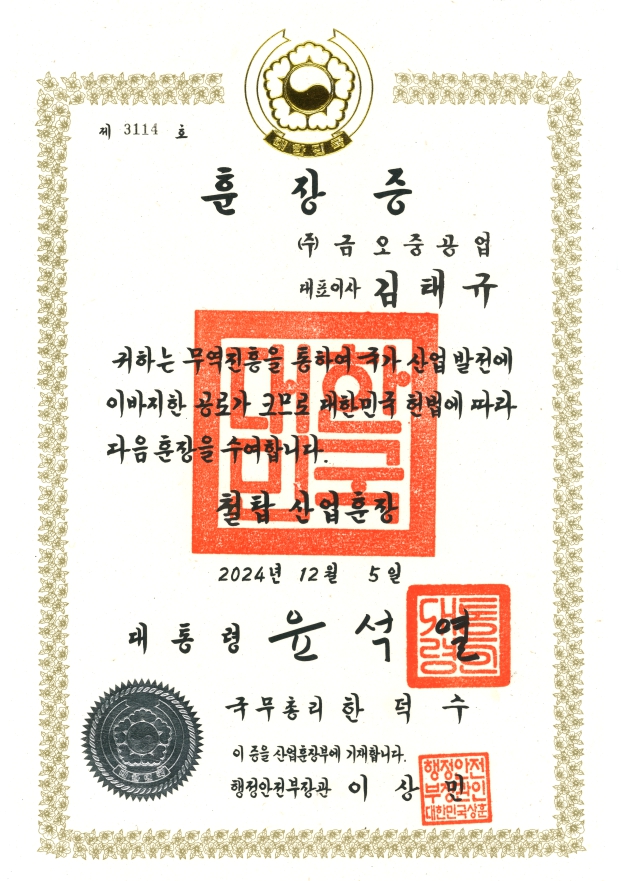 대한민국
제 3114 호
훈 장 증
(주) 금 오 중 공 업
대표이사 김 태 규
귀하는 무역진흥을 통하여 국가 산업 발전에
이바지한 공로가 크므로 대한민국 헌법에 따라
다음 훈장을 수여합니다.
대한민국
철탑 산업훈장
2024년 12월 5일
대 통 령 윤 석 열
국무총리 한 덕 수
이 증을 산업훈장부에 기재합니다.
행정안전부장관 이 상 민
행정안전
부장관인
대한민국상훈